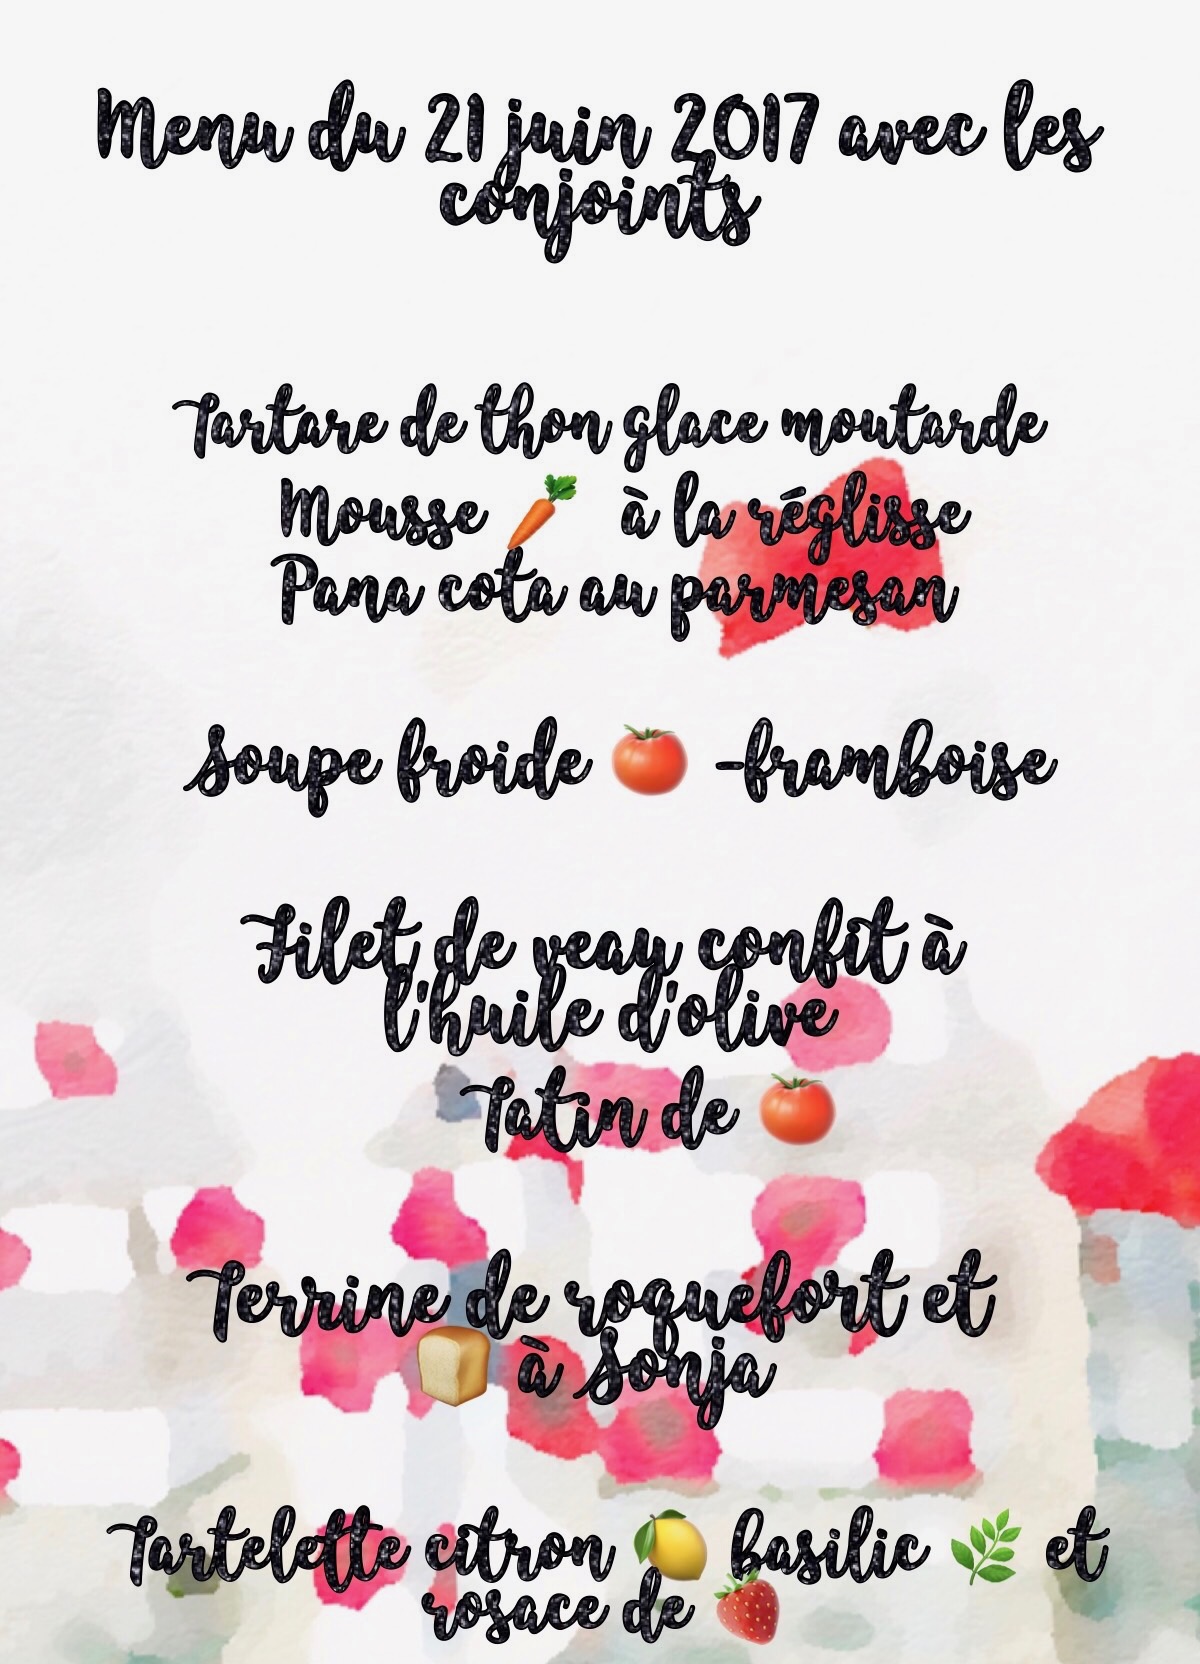 Menu du 21 juin 2017 avec les
conjoints
Tartare de thon glace moutarde
Mousse 🥕 à la réglisse
Pana cota au parmesan
Soupe froide 🍅 -framboise
Filet de veay confit à
l'huile d'olive
Tatin de 🍅
Terrine de roquefort et
🍞 à Sonja
Tartelette citron 🍋 basilic 🌿 et
rosace de 🍓